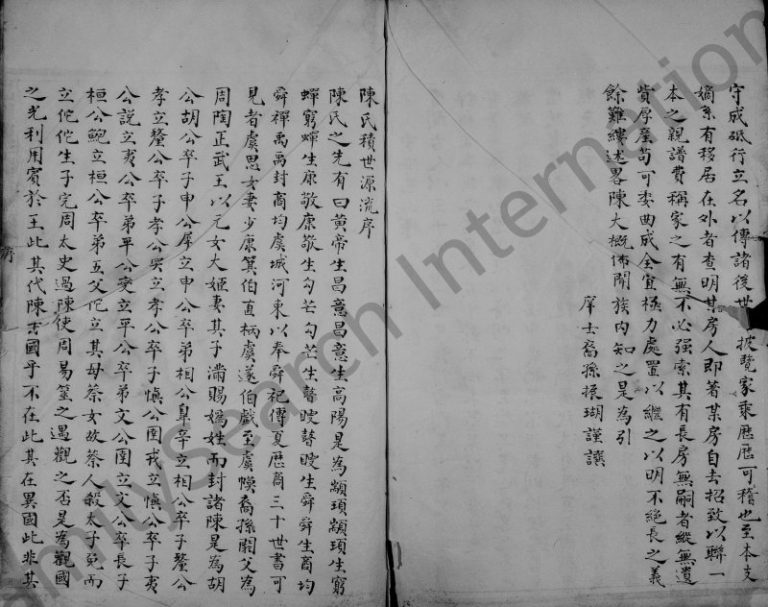 守成砥行立名以傳諸後世披覽家乘歷歷可稽也至本支
嫡系有移居在外者查明某房人即著某房自去招致以聯一
本之親譜費稱家之有無不必強索其有長房無嗣者縱無遺
貲厚產苟可委曲成全宜極力處置以繼之以明不絕長之義
餘難縷述畧陳大概佈聞族內知之是為引
庠士裔孫振瑚謹譔
陳氏積世源流序
陳氏之先有曰黃帝生昌意昌意生高陽是為顓頊顓頊生窮
蟬窮蟬生康敬康敬生勾芒勾芒生瞽瞍瞽瞍生舜舜生商均
舜禪禹禹封商均虞城河東以奉舜祀傳夏歷商三十世書可
見者虞思女妻少康箕伯直柄虞遂伯戲至虞幙裔孫閼父為
周陶正武王以元女大姬妻其子滿賜媯姓而封諸陳是為胡
公胡公卒子申公犀立申公卒弟相公臯立相公卒子釐公
孝立釐公卒子孝公突立孝公卒子慎公圉戎立慎公卒子夷
公說立夷公卒弟平公燮立平公卒弟文公圉立文公卒長子
桓公鮑立桓公卒弟五父佗立其母蔡女故蔡人殺太子免而
立佗佗生子完周太史過陳使周易筮之遇觀之否是為觀國
之光利用賓於王此其代陳有國乎不在此其在異國此非其
FamilySearch International